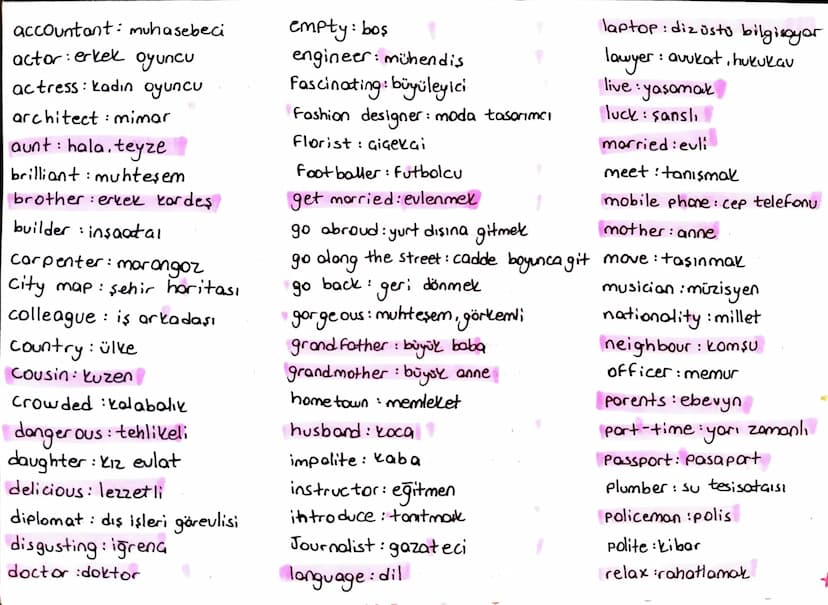 accountant: muhasebeci
actor: erkek oyuncu
actress: kadın oyuncu
architect: mimar
aunt: hala, teyze
brilliant: muhteşem
brother: erkek kardeş
builder: inşaatcı
carpenter: marangoz
city map: şehir haritası
colleague: iş arkadaşı
country: ülke
cousin: kuzen
crowded: kalabalık
dangerous: tehlikeli
daughter: kız evlat
delicious: lezzetli
diplomat: dış işleri görevlisi
disgusting: iğrenç
doctor: doktor
empty: boş
engineer: mühendis
fascinating: büyüleyici
fashion designer: moda tasarımcı
florist: çiçekçi
footballer: futbolcu
get married: evlenmek
go abroud: yurt dışına gitmek
go along the street: cadde boyunca git
go back: geri dönmek
gorgeous: muhteşem, görkemli
grandfather: büyük baba
grandmother: büyük anne
hometown: memleket
husband: koca
impolite: kaba
instructor: eğitmen
introduce: tanıtmak
Journalist: gazateci
language: dil
laptop: dizüstü bilgisayar
lawyer: avukat, hukukçu
live: yaşamak
luck: şanslı
married: evli
meet: tanışmak
mobile phone: cep telefonu
mother: anne
move: taşınmak
musician: müzisyen
nationality: millet
neighbour: komşu
officer: memur
parents: ebevyn
part-time: yarı zamanlı
passport: pasaport
plumber: su tesisatçısı
policeman: polis
polite: kibar
relax: rahatlamak